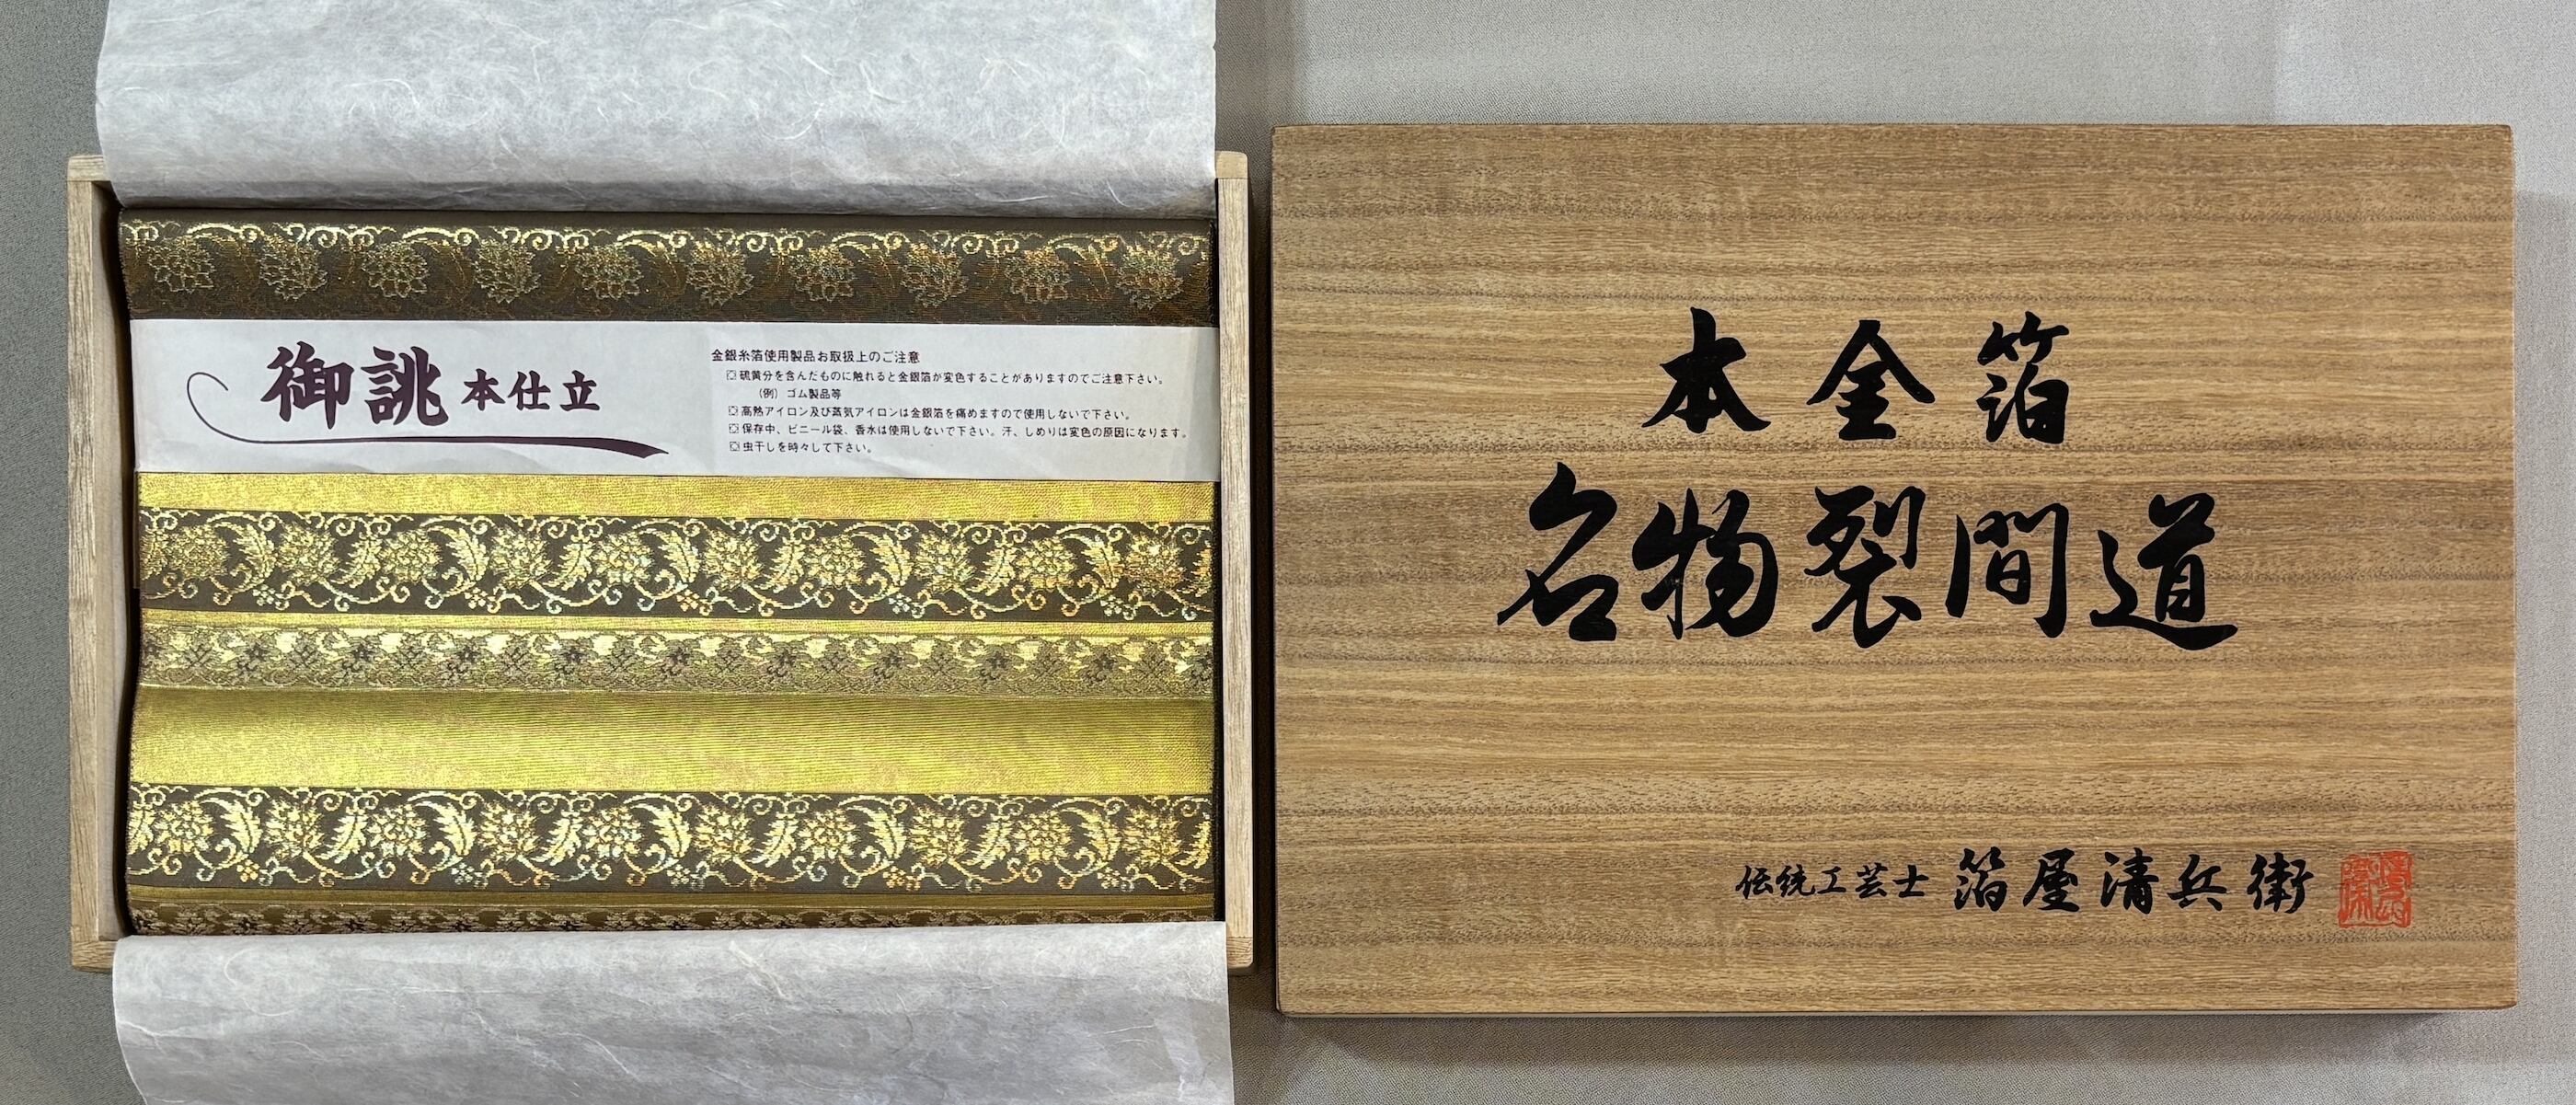 御誂 本仕立
金銀糸箔使用製品お取扱上のご注意
硫黄分を含んだものに触れると金銀箔が変色することがありますのでご注意下さい。
(例) ゴム製品等
高熱アイロン及び蒸気アイロンは金銀箔を痛めますので使用しないで下さい。
保存中、ビニール袋、香水は使用しないで下さい。汗、しめりは変色の原因になります。
虫干しを時々して下さい。
本金箔
名物裂間道
伝統工芸士 箔屋清兵衛